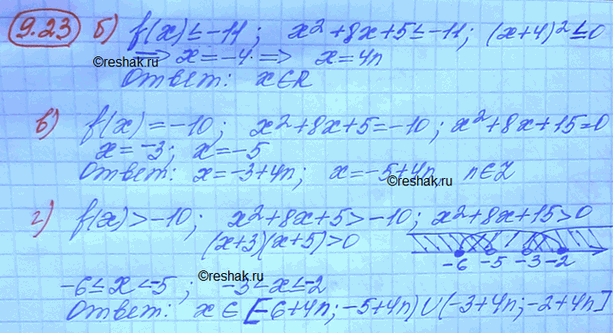 9.23 б) f(x) ≤ -11; x²+8x+5 ≤ -11; (x+4)² ≤ 0
⟹ x = -4 ⟹ x = 4n
©reshak.ru
Ответ: x∈R
в) f(x) = -10; x²+8x+5 = -10; x²+8x+15=0
x = -3; x = -5
Ответ: x = -3+4n; x = -5+4n n∈Z
©reshak.ru
г) f(x) > -10; x²+8x+5 > -10; x²+8x+15 > 0
(x+3)(x+5) > 0
-6 -5 -3 -2
-6 ≤ x < -5; -3 < x ≤ -2
©reshak.ru
Ответ: x ∈ [-6+4n; -5+4n) ∪ (-3+4n; -2+4n]